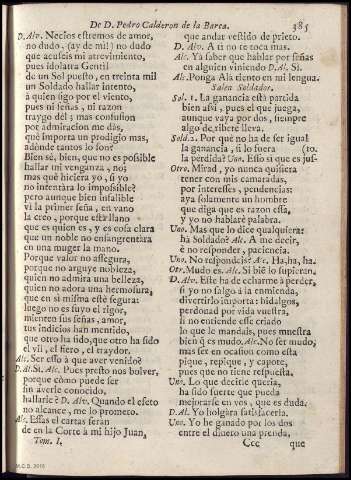 De D. Pedro Calderon de la Barca. 385
D. Alv. Necios estremos de amor,
no dudo, (ay de mil) no dudo
que acuseis mi atrevimiento,
pues idolatra Gentil
de un Sol puesto, en treinta mil
un Soldado hallar intento,
à quien sigo por el viento,
pues ni señas, ni razon
traygo dèl; mas confusion
por admiracion me dàs,
què importa un prodigio mas,
adònde tantos lo son?
Bien sè, bien, que no es possible
hallar mi venganza, no;
mas què hiciera yo, si yo
no intentàra lo impossible?
pero aunque bien infalible
vì la primer seña, en vano
la creo, porque està llano
que es quien es, y es cosa clara
que un noble no ensangrentàra
en una muger la mano.
Porque valor no assegura,
porque no arguye nobleza,
quien no admira una belleza,
quien no adora una hermosura,
que en sì misma està segura:
luego no es suyo el rigor,
mienten sus señas, amor,
tus indicios han mentido,
que otro ha sido, que otro ha sido
el vil, el fiero, el traydor.
Alc. Ser esso à que aver venido?
D. Al. Sì. Alc. Pues presto nos bolver,
porque còmo puede ser
sin averle conocido,
hallarle? D. Alv. Quando el efeto
no alcance, me lo prometo.
Alc. Essas el cartas seràn
de en la Corte à mi hijo Juan,
Tom. I.
que andar vestido de prieto.
D. Alv. A tì no te toca mas.
Alc. Yo saber que hablar por señas
en alguien viniendo. D. Al. Sì.
Alc. Ponga Alà tiento en mi lengua.
Salen Soldados.
Sol. 1. La ganancia està partida
bien assi, pues el que juega,
aunque vaya por dos, siempre
algo de mas lleva.
Sold. 2. Por què no ha de ser igual
la ganancia, si lo fuera (to.
la pèrdida? Uno. Esso sì que es jus-
Otro. Mirad, yo nunca quisiera
tener con mis camaradas,
por interesses, pendencias:
aya solamente un hombre
que diga que es razon essa,
y yo no hablarè palabra.
Uno. Mas que lo dice qualquiera:
ha Soldado? Alc. A me decir,
è no responder, paciencia.
Uno. No respondeis? Alc. Ha, ha, ha.
Otr. Mudo es. Alc. Si bien lo supieran.
D. Alv. Este ha de echarme à perder,
si yo no salgo à la enmienda,
divertirlo importa: hidalgos,
perdonad por vida vuestra,
si no entiende esse criado
lo que le mandais, pues muestra
bien q̃ es mudo. Alc. No ser mudo,
mas ser en ocasion como esta
pique, repique, y capote,
pues que no tiene respuesta.
Uno. Lo que decirle queria,
ha sido fuerte que pueda
mejorarse en vos, que es duda.
D. Al. Yo holgàra satisfacerla.
Uno. Yo he ganado por los dos
entre el dinero una prenda,
Ccc que
M.C.D. 2018